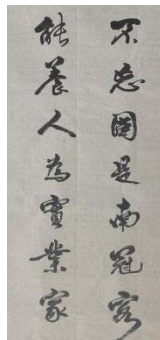 不忘固是南冠客
能養人為實業家